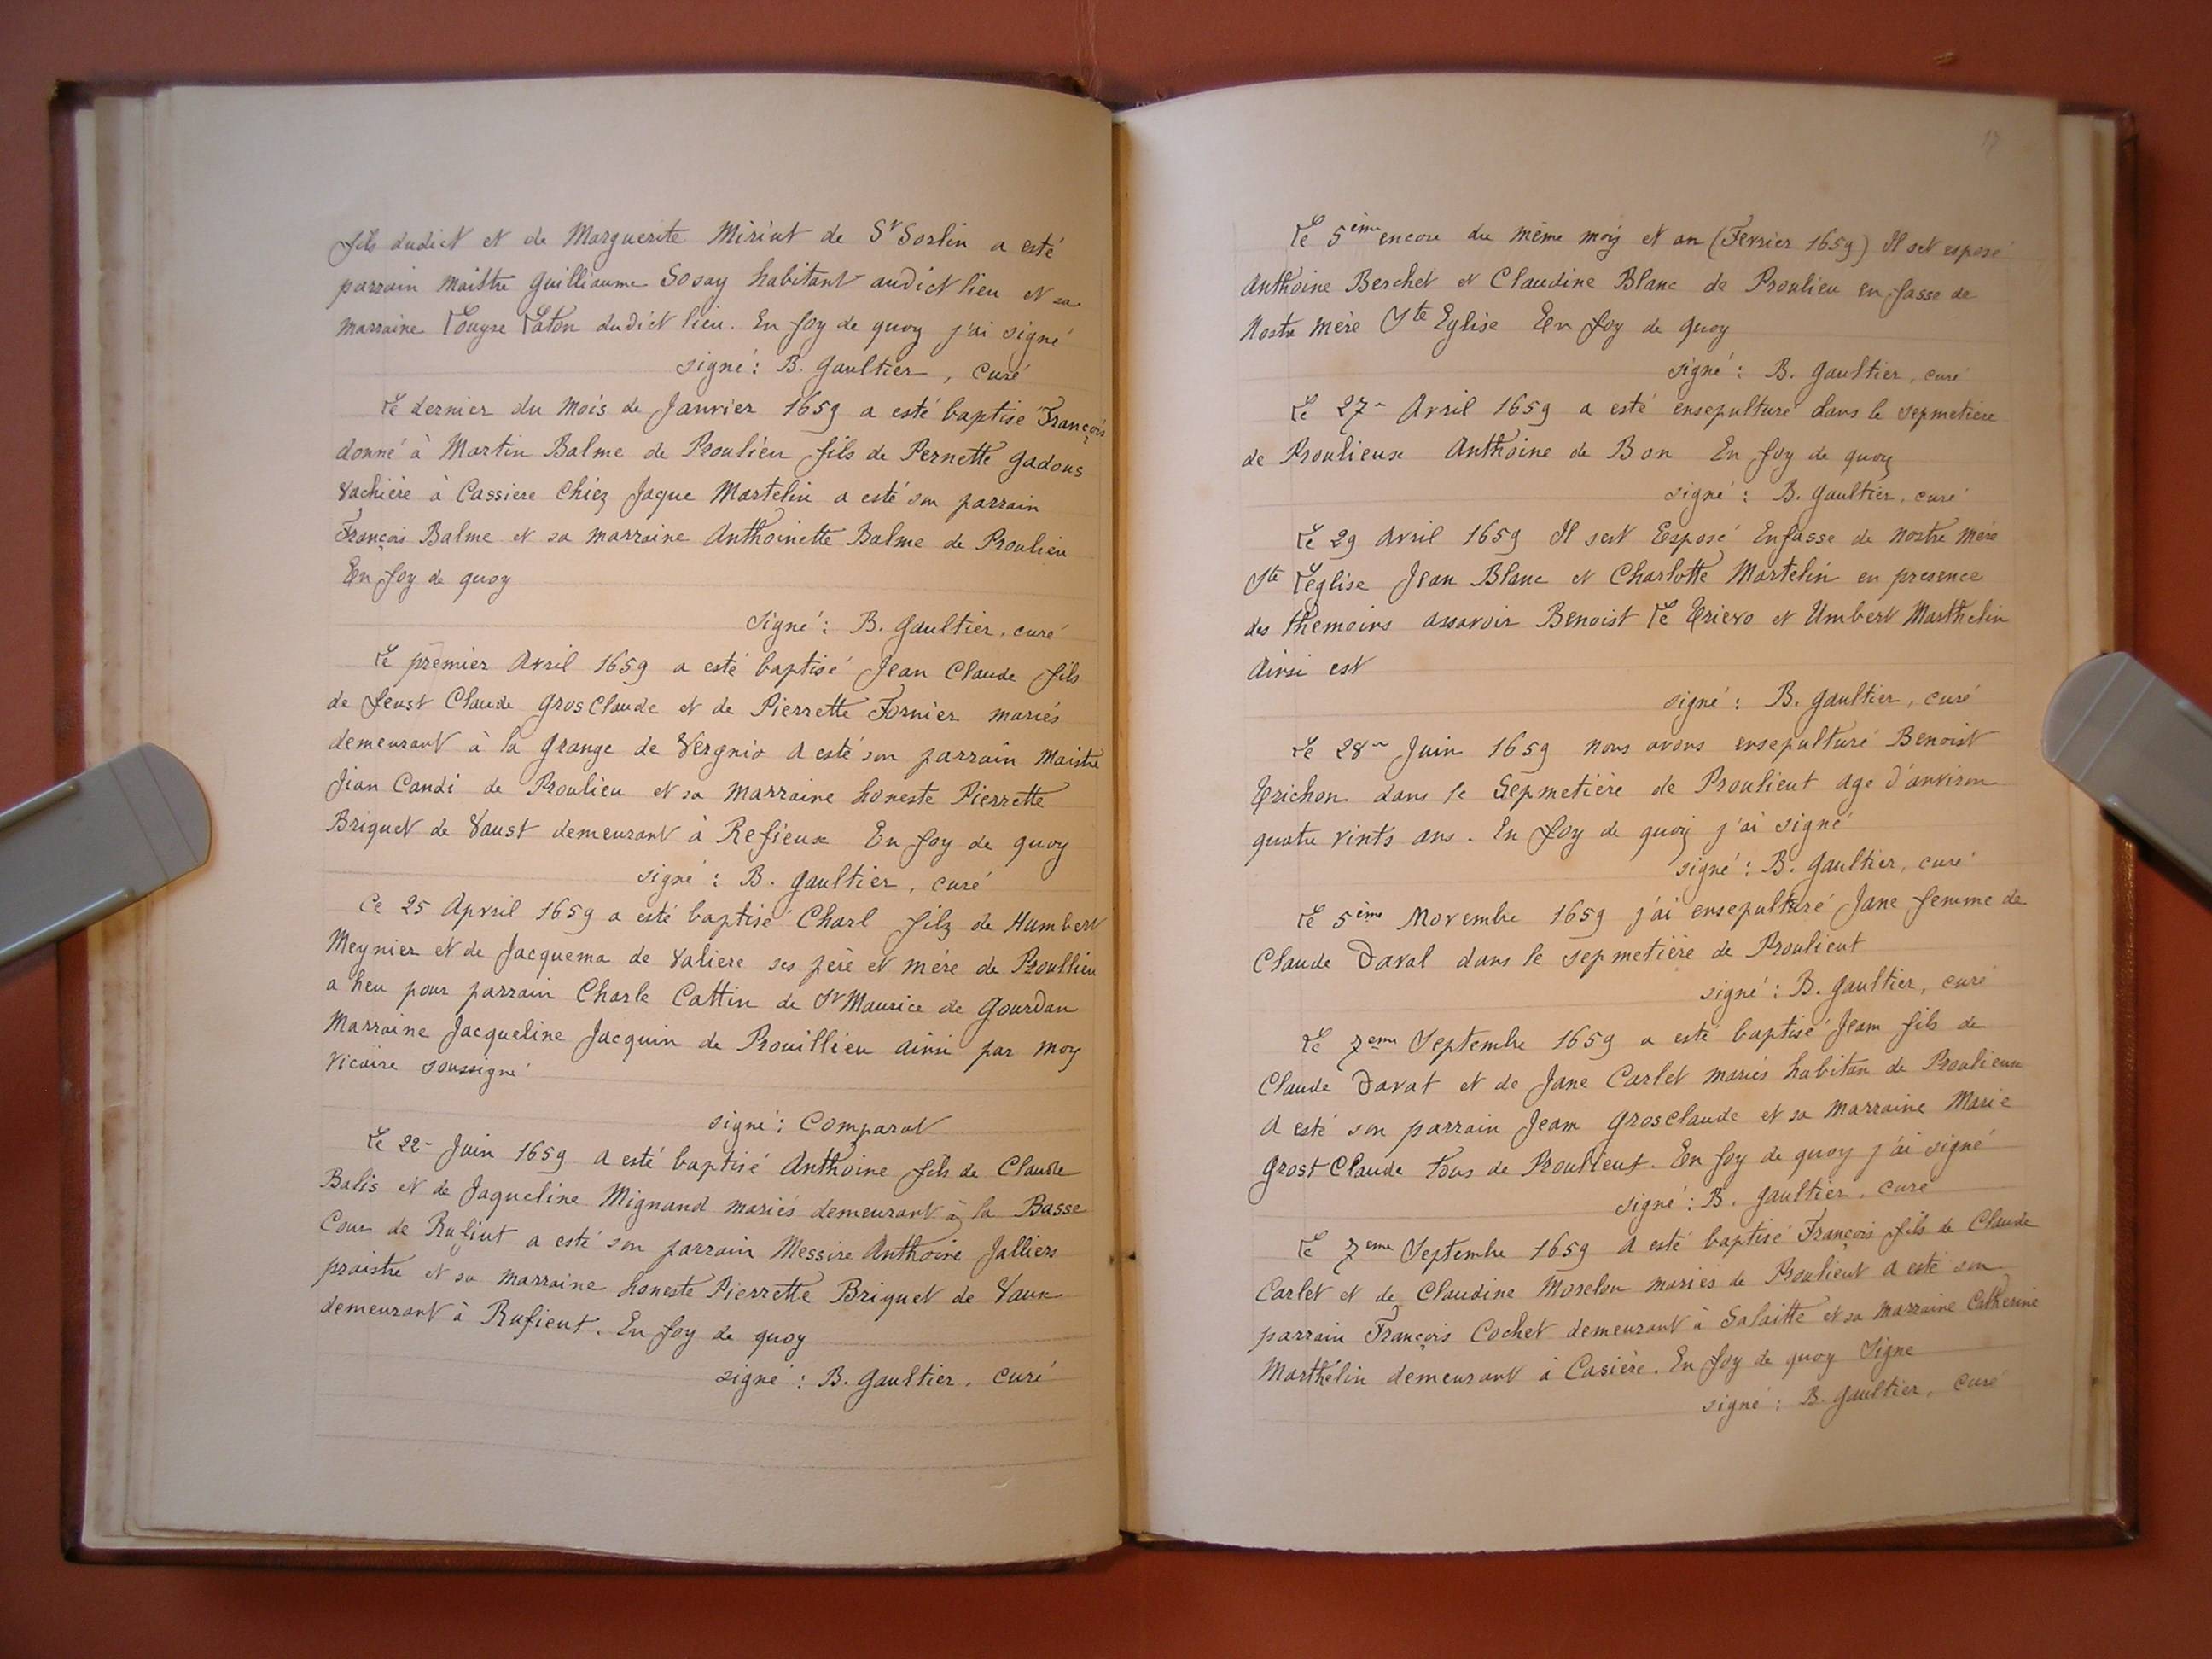 fils dudict et de Marguerite Miriut de St Sorlin a esté
parrain maistre Guilliaume Sosay habitant audict lieu et sa
marraine Louyse Laton dudict lieu. En foy de quoy j'ai signé
signé : B. Gaultier, curé
Le dernier du mois de Janvier 1659 a esté baptisé François
donné à Martin Balme de Proulieu fils de Pernette Gadous
vachière à Cassiere chiez Jaque Martelin a esté son parrain
François Balme et sa marraine Anthoinette Balme de Proulieu
En foy de quoy
signé : B. Gaultier, curé
Le premier Avril 1659 a esté baptisé Jean Claude fils
de feust Claude Gros Claude et de Pierrette Fornier mariés
demeurant à la Grange de Vergnio a esté son parrain Maistre
Jian Candi de Proulieu et sa marraine honeste Pierrette
Briquet de Vaust demeurant à Refieux En foy de quoy
signé : B. Gaultier, curé
Ce 25 Apvril 1659 a esté baptisé Charl filz de Humbert
Meynier et de Jacquema de Valiere ses père et mère de Proullieu
a heu pour parrain Charle Cattin de St Maurice de Gourdan
Marraine Jacqueline Jacquin de Prouillieu ainsi par moy
vicaire soussigné
signé : Comparat
Le 22 Juin 1659 a esté baptisé Anthoine fils de Claude
Balis et de Jaqueline Mignand mariés demeurant à la Basse
Cour de Rufiut a esté son parrain Messire Anthoine Jalliers
praistre et sa marraine honeste Pierrette Briquet de Vaux
demeurant à Rufieut. En foy de quoy
signé : B. Gaultier. curé
17
Le 5ème encore du même moy et an (Fevrier 1659) Il set esposé
Anthoine Berchet et Claudine Blanc de Proulieu en fasse de
Nostre mère Ste Eglise En foy de quoy
signé : B. Gaultier, curé
Le 27 Avril 1659 a esté ensepulturé dans le sepmetiere
de Proulieux Anthoine de Bon En foy de quoy
signé : B. Gaultier, curé
Le 29 Avril 1659 Il sest Esposé Enfasse de nostre mère
Ste Léglise Jean Blanc et Charlotte Martelin en presence
des themoins assavoir Benoist Le Trievo et Umbert Marthelin
Ainsi est
signé : B. Gaultier, curé
Le 28 Juin 1659 nous avons ensepulturé Benoist
Trichon dans le Sepmetière de Proulieut age d'anviron
quatre vints ans. En foy de quoy j'ai signé
signé : B. Gaultier, curé
Le 5ème Novembre 1659 j'ai ensepulturé Jane femme de
Claude Daval dans le sepmetière de Proulieut
signé : B. Gaultier, curé
Le 7eme Septembre 1659 a esté baptisé Jeam fils de
Claude Davat et de Jane Carlet mariés habitan de Proulieux
A esté son parrain Jeam Grosclaude et sa marraine Marie
Grost Claude tous de Proulieut. En foy de quoy j'ai signé
signé : B. Gaultier, curé
Le 7eme Septembre 1659 a esté baptisé François fils de Claude
Carlet et de Claudine Moselon mariés de Proulieut a esté son
parrain François Cochet demeurant à Salaitte et sa marraine Catherine
Marthelin demeurant à Casière. En foy de quoy Signe
signé : B. Gaultier, curé